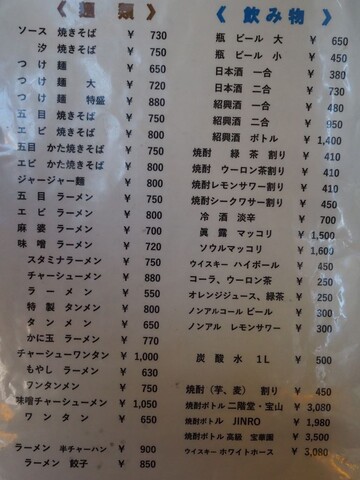 《 麺 類 》
ソース 焼きそば ￥ 730
汐 焼きそば ￥ 750
つけ 麺 ￥ 650
つけ 麺 大 ￥ 720
つけ 麺 特盛 ￥ 880
五目 焼きそば ￥ 750
エビ 焼きそば ￥ 800
五目 かた焼きそば ￥ 750
エビ かた焼きそば ￥ 800
ジャージャー麺 ￥ 800
五目 ラーメン ￥ 750
エビ ラーメン ￥ 800
麻婆 ラーメン ￥ 700
味噌 ラーメン ￥ 720
スタミナラーメン ￥ 750
チャーシューメン ￥ 880
ラーメン ￥ 550
特製 タンメン ￥ 800
タンメン ￥ 650
かに玉 ラーメン ￥ 770
チャーシューワンタン ￥ 1,000
もやし ラーメン ￥ 630
ワンタンメン ￥ 750
味噌チャーシューメン ￥ 1,050
ワンタン ￥ 650
ラーメン 半チャーハン ￥ 900
ラーメン 餃子 ￥ 850
《 飲み物 》
瓶 ビール 大 ￥ 650
瓶 ビール 小 ￥ 450
日本酒 一合 ￥ 380
日本酒 二合 ￥ 730
紹興酒 一合 ￥ 480
紹興酒 二合 ￥ 950
紹興酒 ボトル ￥ 1,400
焼酎 緑茶割り ￥ 410
焼酎 ウーロン茶割り ￥ 410
焼酎レモンサワー割り ￥ 410
焼酎シークワサー割り ￥ 450
冷酒 淡辛 ￥ 700
眞露 マッコリ ￥ 1,500
ソウルマッコリ ￥ 1,600
ウイスキー ハイボール ￥ 450
コーラ、ウーロン茶 ￥ 250
オレンジジュース、緑茶 ￥ 250
ノンアルコールビール ￥ 300
ノンアル レモンサワー ￥ 300
炭酸水 1L ￥ 500
焼酎（芋、麦） 割り ￥ 450
焼酎ボトル 二階堂・宝山 ￥ 3,080
焼酎ボトル JINRO ￥ 1,980
焼酎ボトル高級 宝華園 ￥ 3,500
ウイスキー ホワイトホース ￥ 3,080